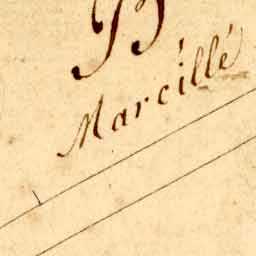 Marcillé